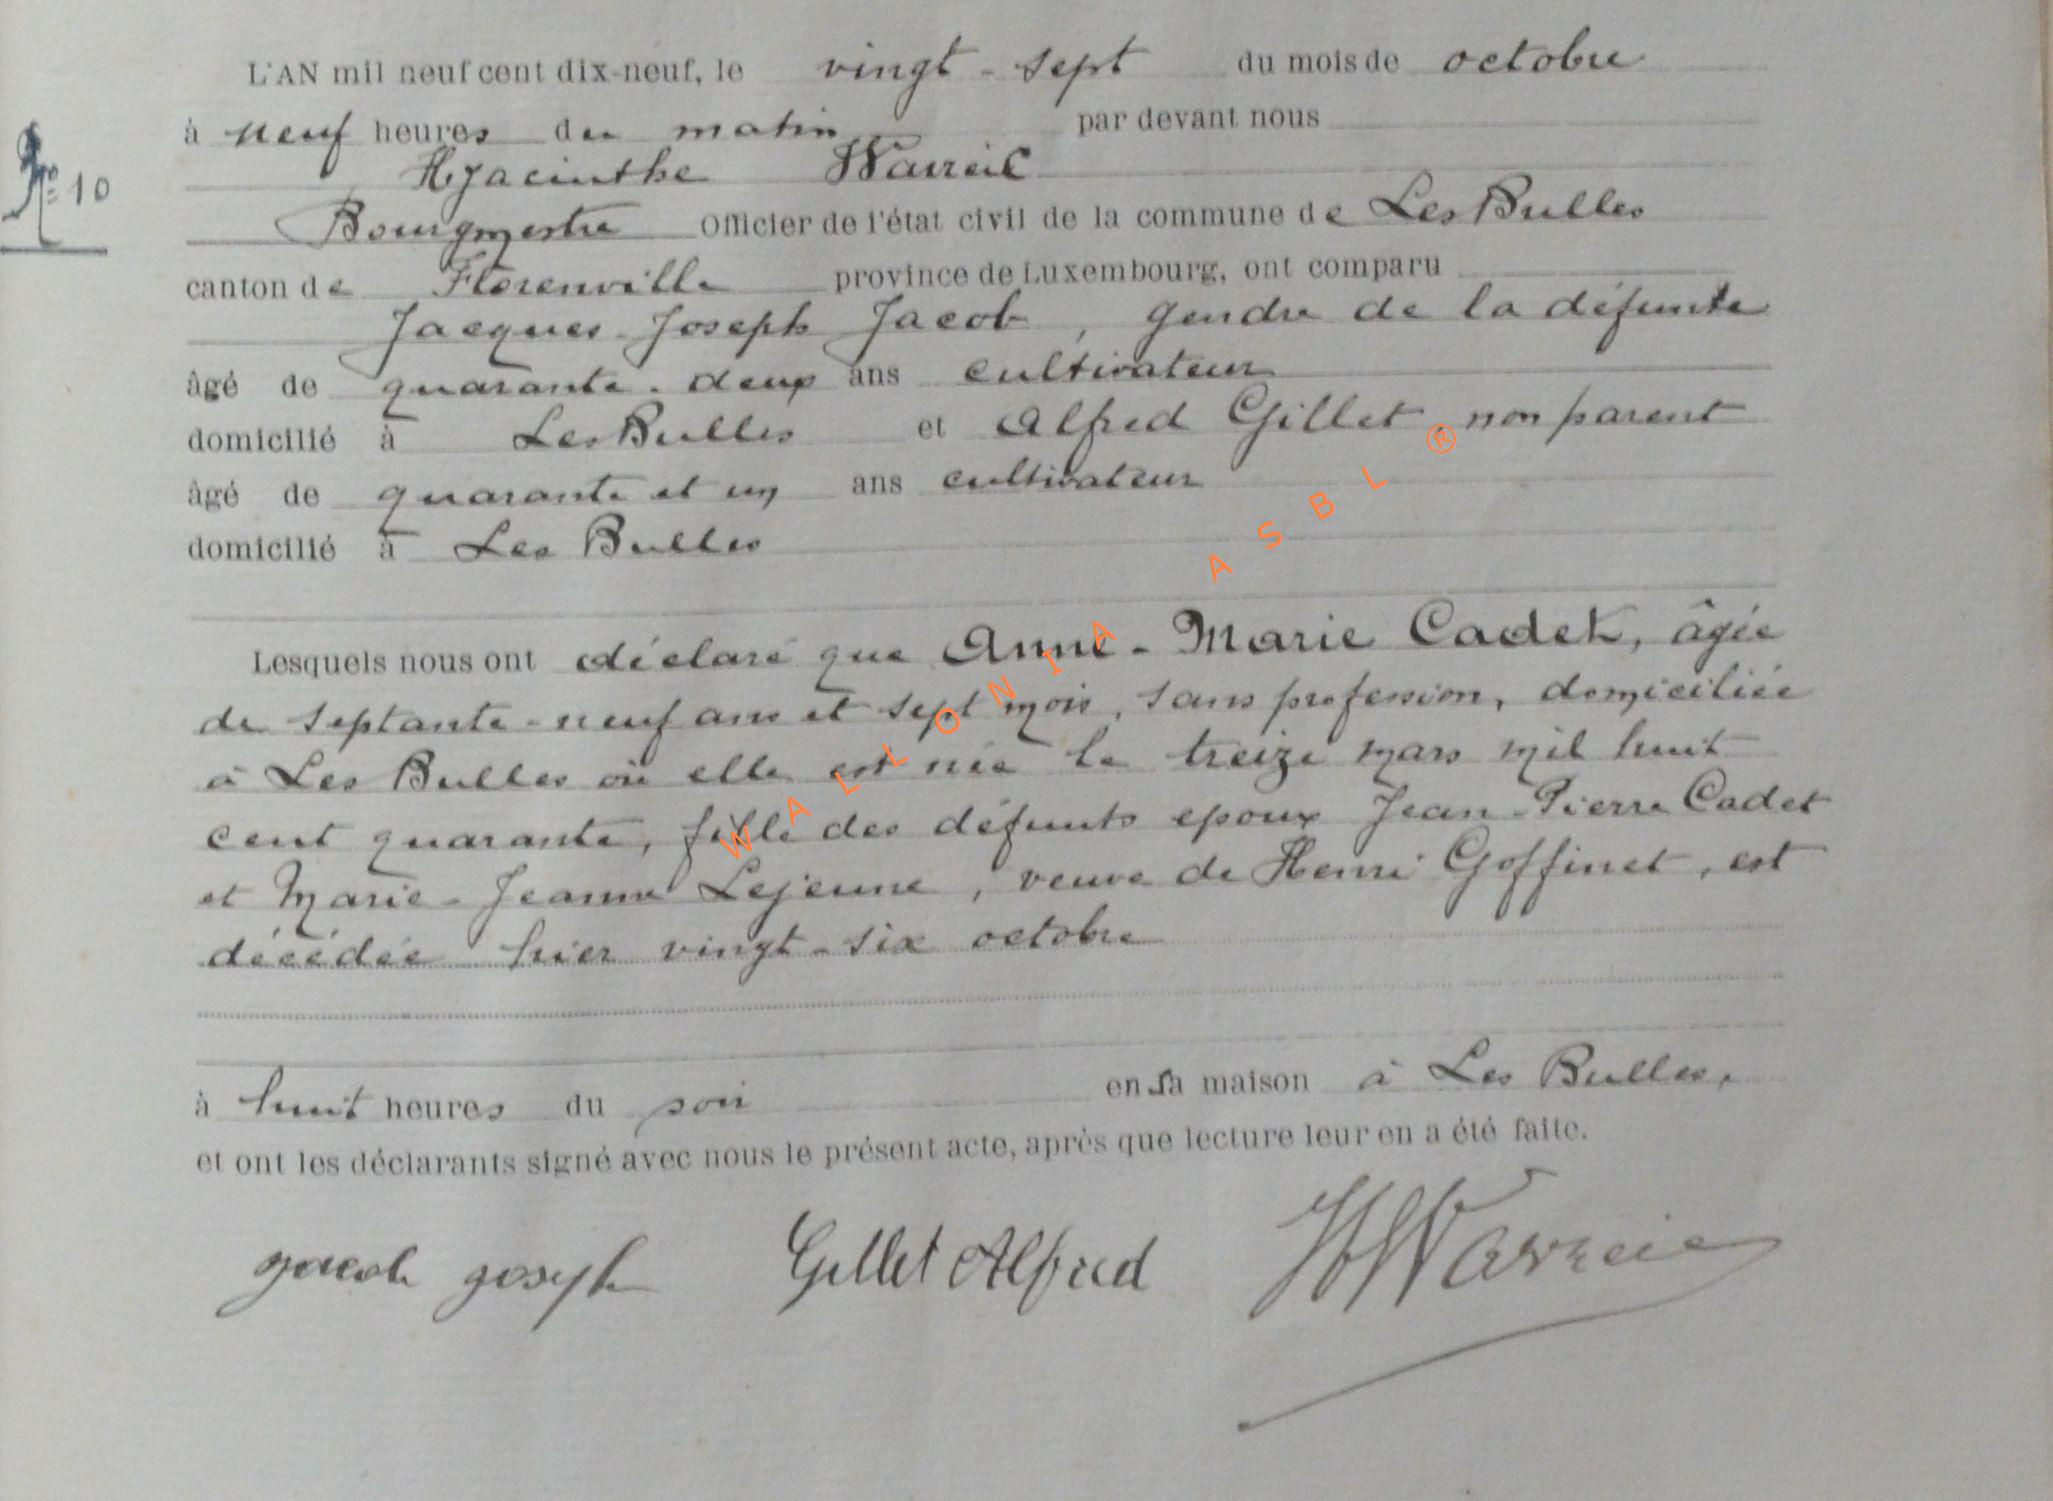 L'AN mil neuf cent dix-neuf, le vingt-sept du mois de octobre
à neuf heures du matin par devant nous
N° 10
Hyacinthe
Bourgmestre Officier de l'état civil de la commune de Les Bulles
canton de Florenville province de Luxembourg, ont comparu
Jacques-Joseph Jacob, gendre de la défunte
âgé de quarante-deux ans cultivateur
domicilié à Les Bulles et Alfred Gillet, non parent
âgé de quarante et un ans cultivateur
domicilié à Les Bulles
Lesquels nous ont déclaré que Anne-Marie Cadet, âgée
de septante-neuf ans et sept mois, sans profession, domiciliée
à Les Bulles où elle est née le treize mars mil huit
cent quarante, fille des défunts epoux Jean-Pierre Cadet
et Marie-Jeanne Lejeune, veuve de Henri Goffinet, est
décédée hier vingt-six octobre
à huit heures du soir en sa maison à Les Bulles,
et ont les déclarants signé avec nous le présent acte, après que lecture leur en a été faite.
Jacob Joseph Gillet Alfred
WALLONIA ASBL ®